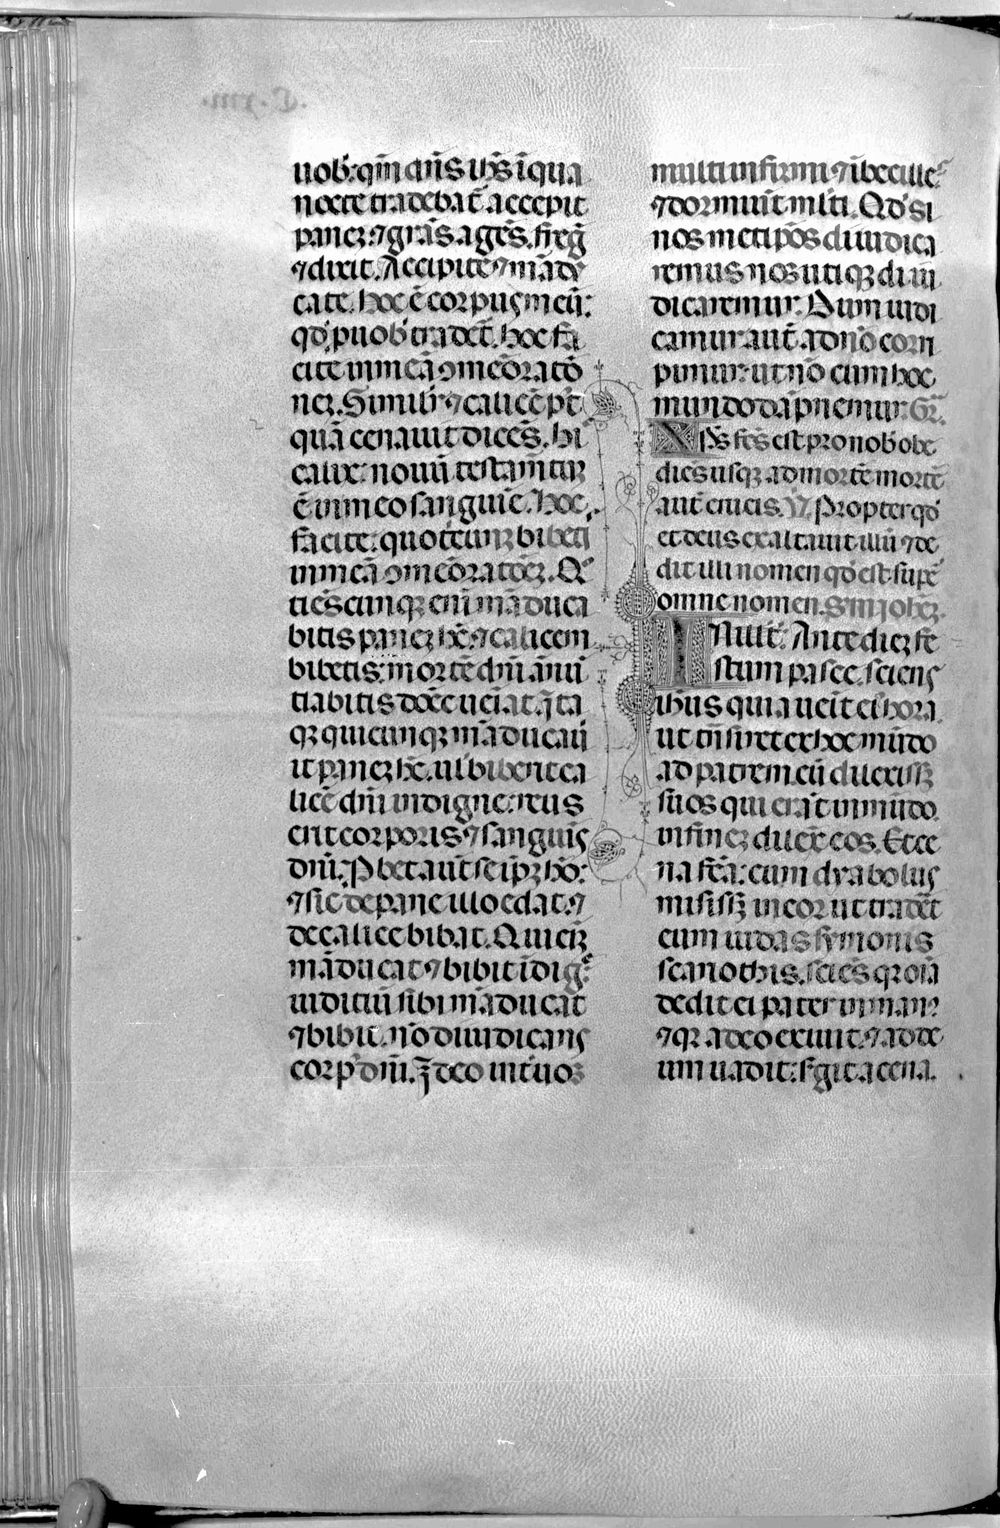 uob᷒: qm̄ dn̄s ih̄s ī qua
nocte tradebat᷒. accepit
panez ⁊ gr̄as agēs. freḡ
⁊ dixit. Accipite ⁊ mādu
cate. hoc ē corpus meū:
qd̓ p uob᷒ tradet᷒. hoc fa
cite in meā ꝯmēoratō
nez. Simil̓r ⁊ calicē p᷒t
quā cenauit dicēs. hi
calix nouū testam̄tuz
ē in meo sanguīe. hoc
facite: quotiēcunqz bibet᷒
in meā ꝯmēoratōez. Q᷒
tiēscunqz eni māduca
bitis panez hc̄. ⁊ calicem
bibetis: mortē dn̄i ānū
tiabitis donēc ueīat. ꝗ ita
qz quicunqz māducaū
it panez hc̄. ul̓ bibent ca
licē dn̄i indigne: reus
erit corporis ⁊ sanguīs
dn̄i. Ꝓbet aut̄ seip̄z hō:
⁊ sic de pane illo edat. ⁊
de calice bibat. Qui eīz
māducat ⁊ bibit īdig᷒:
iuditiū sibi māducat
⁊ bibit. nō diiudicans
corp᷒ dn̄i. Iō deo int̓ uos
multi infirmi ⁊ ībecille᷒
⁊ dormiūt ml̓ti. Qd̓ si
nosmetip̄os diiudica
remus nos utiqz diiu
dicaremur. Dum iudi
camur aut̄. a dn̄o cori
pimur: ut nō cum hoc
mundo dāpnemur. Gr̄.
Xp̄s fc̄s est pro nob᷒ obe
diēs usqz ad mortē mortē
aut̄ crucis. V̄. Propter qd̓
et deus exaltauit illū ⁊ de
dit illi nomen qd̓ est sup̄
omne nomen. S'm joh̄ez.
IN ill᷒ t᷒. Ante diez fe
stum pasce. sciens
ih̄us quia ueīt ei᷒ hora
ut trn̄siret ex hoc mūdo
ad patrem cū dilexissz
suos qui erāt in mūdo.
in finez dilex̄ eos. Et ce
na fc̄a: cum dyabolus
misissz in cor ut tradēt
eum iudas symonis
scariothis. sciēs qz oīa
dedit ei pater in man᷒
⁊ qz a deo exiuit. ⁊ ad de
um uadit: s̄git a cena.